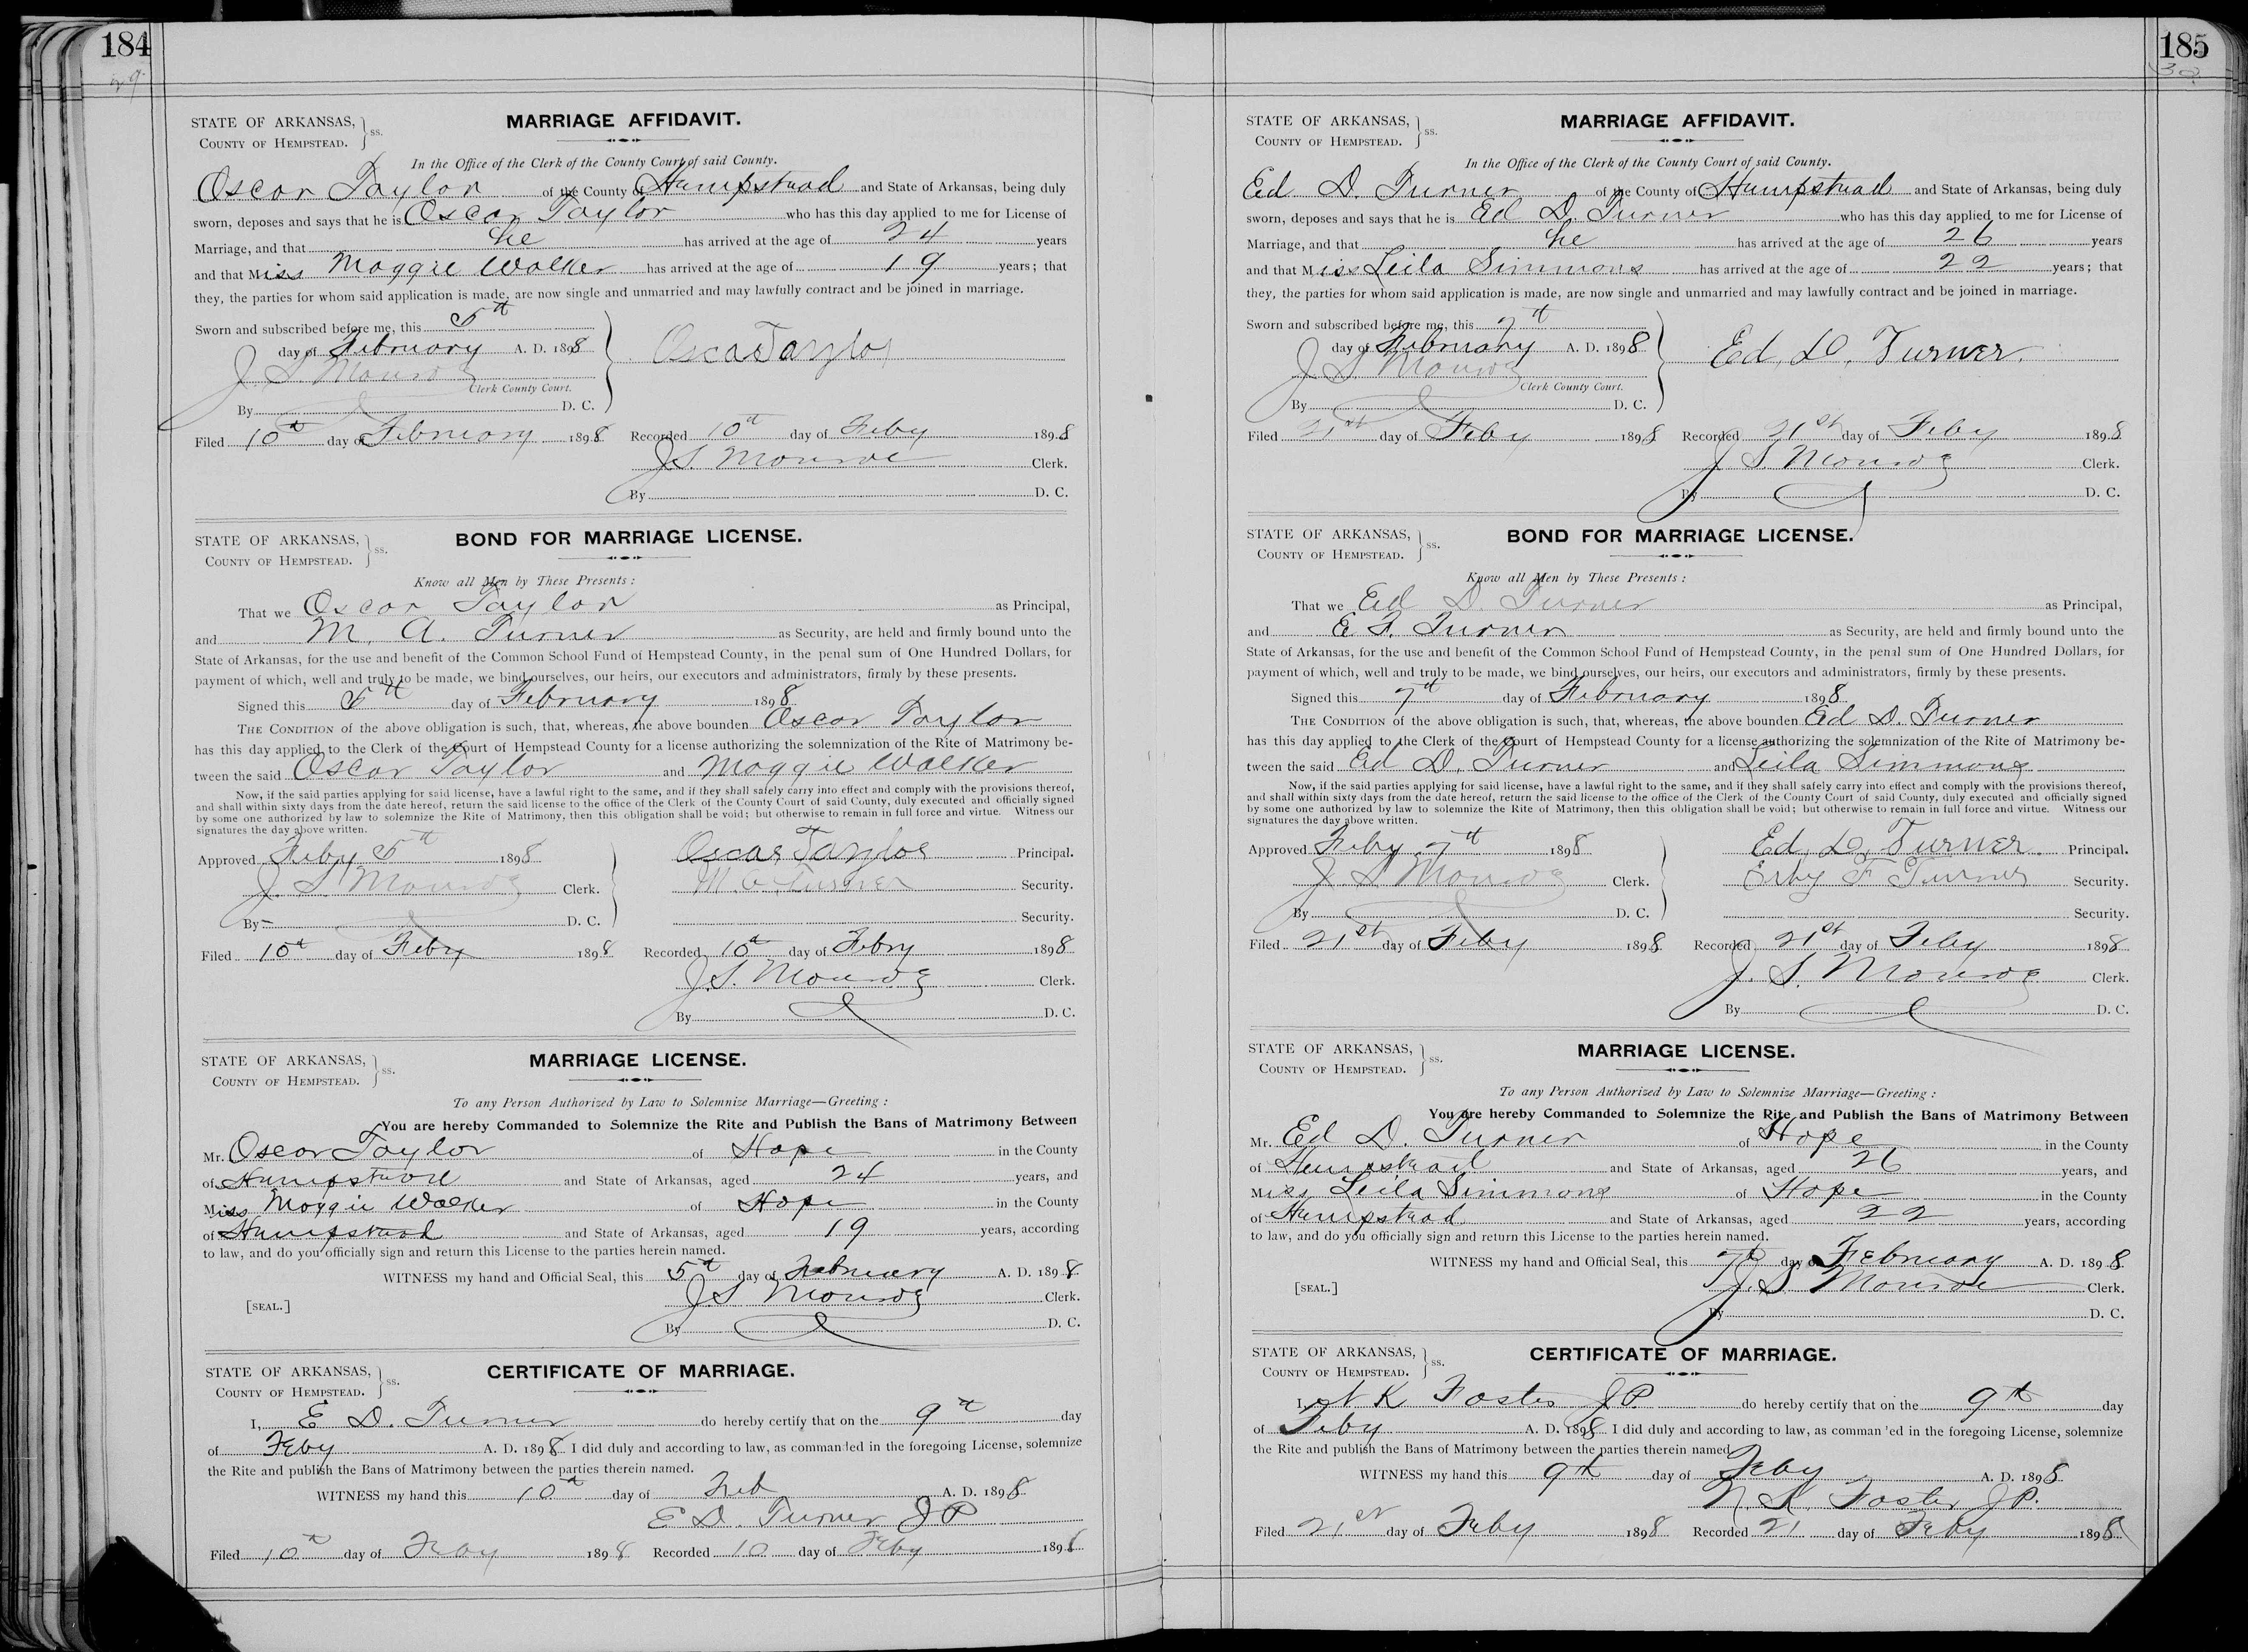 184
29
MARRIAGE AFFIDAVIT.
STATE OF ARKANSAS, } ss.
COUNTY OF HEMPSTEAD.
In the Office of the Clerk of the County Court of said County.
Oscar Taylor of the County of Hempstead and State of Arkansas, being duly
sworn, deposes and says that he is Oscar Taylor who has this day applied to me for License of
Marriage, and that he has arrived at the age of 24 years
and that Miss Maggie Walker has arrived at the age of 19 years; that
they, the parties for whom said application is made, are now single and unmarried and may lawfully contract and be joined in marriage.
Sworn and subscribed before me, this 5th
day of February A. D. 1898 Oscar Taylor
J. S. Monroe
Clerk County Court.
By D. C.
Filed 10th day of February 1898 Recorded 10th day of Feby 1898
J. S. Monroe Clerk.
By D. C.
BOND FOR MARRIAGE LICENSE.
STATE OF ARKANSAS, } ss.
COUNTY OF HEMPSTEAD.
Know all Men by These Presents:
That we Oscar Taylor as Principal,
and M. A. Turner as Security, are held and firmly bound unto the
State of Arkansas, for the use and benefit of the Common School Fund of Hempstead County, in the penal sum of One Hundred Dollars, for
payment of which, well and truly to be made, we bind ourselves, our heirs, our executors and administrators, firmly by these presents.
Signed this 5th day of February 1898
THE CONDITION of the above obligation is such, that, whereas, the above bounden Oscar Taylor
has this day applied to the Clerk of the Court of Hempstead County for a license authorizing the solemnization of the Rite of Matrimony be-
tween the said Oscar Taylor and Maggie Walker
Now, if the said parties applying for said license, have a lawful right to the same, and if they shall safely carry into effect and comply with the provisions thereof,
and shall within sixty days from the date hereof, return the said license to the office of the Clerk of the County Court of said County, duly executed and officially signed
by some one authorized by law to solemnize the Rite of Matrimony, then this obligation shall be void; but otherwise to remain in full force and virtue. Witness our
signatures the day above written.
Approved Feby 5th 1898 Oscar Taylor Principal.
J. S. Monroe Clerk. M. A. Turner Security.
By D. C. Security.
Filed 10th day of Feby 1898 Recorded 10th day of Febry 1898
J. S. Monroe Clerk.
By D. C.
MARRIAGE LICENSE.
STATE OF ARKANSAS, } ss.
COUNTY OF HEMPSTEAD.
To any Person Authorized by Law to Solemnize Marriage—Greeting:
You are hereby Commanded to Solemnize the Rite and Publish the Bans of Matrimony Between
Mr. Oscar Taylor of Hope in the County
of Hempstead and State of Arkansas, aged 24 years, and
Miss Maggie Walker of Hope in the County
of Hempstead and State of Arkansas, aged 19 years, according
to law, and do you officially sign and return this License to the parties herein named.
WITNESS my hand and Official Seal, this 5th day of February A. D. 1898
[SEAL.] J. S. Monroe Clerk.
By D. C.
CERTIFICATE OF MARRIAGE.
STATE OF ARKANSAS, } ss.
COUNTY OF HEMPSTEAD.
I, E. D. Turner do hereby certify that on the 9th day
of Feby A. D. 1898 I did duly and according to law, as commanded in the foregoing License, solemnize
the Rite and publish the Bans of Matrimony between the parties therein named.
WITNESS my hand this 10th day of Feb A. D. 1898
E D. Turner J P
Filed 10th day of Feby 1898 Recorded 10 day of Feby 1898
185
30
MARRIAGE AFFIDAVIT.
STATE OF ARKANSAS, } ss.
COUNTY OF HEMPSTEAD.
In the Office of the Clerk of the County Court of said County.
Ed D. Turner of the County of Hempstead and State of Arkansas, being duly
sworn, deposes and says that he is Ed D. Turner who has this day applied to me for License of
Marriage, and that he has arrived at the age of 26 years
and that Miss Leila Simmons has arrived at the age of 22 years; that
they, the parties for whom said application is made, are now single and unmarried and may lawfully contract and be joined in marriage.
Sworn and subscribed before me, this 7th
day of February A. D. 1898 Ed. D. Turner.
J. S. Monroe
Clerk County Court.
By D. C.
Filed 21st day of Feby 1898 Recorded 21st day of Feby 1898
J. S. Monroe Clerk.
By D. C.
BOND FOR MARRIAGE LICENSE.
STATE OF ARKANSAS, } ss.
COUNTY OF HEMPSTEAD.
Know all Men by These Presents:
That we Ed D. Turner as Principal,
and E. F. Turner as Security, are held and firmly bound unto the
State of Arkansas, for the use and benefit of the Common School Fund of Hempstead County, in the penal sum of One Hundred Dollars, for
payment of which, well and truly to be made, we bind ourselves, our heirs, our executors and administrators, firmly by these presents.
Signed this 7th day of February 1898
THE CONDITION of the above obligation is such, that, whereas, the above bounden Ed D. Turner
has this day applied to the Clerk of the Court of Hempstead County for a license authorizing the solemnization of the Rite of Matrimony be-
tween the said Ed D. Turner and Leila Simmons
Now, if the said parties applying for said license, have a lawful right to the same, and if they shall safely carry into effect and comply with the provisions thereof,
and shall within sixty days from the date hereof, return the said license to the office of the Clerk of the County Court of said County, duly executed and officially signed
by some one authorized by law to solemnize the Rite of Matrimony, then this obligation shall be void; but otherwise to remain in full force and virtue. Witness our
signatures the day above written.
Approved Feby 7th 1898 Ed. D. Turner. Principal.
J. S. Monroe Clerk. Erby F Turner Security.
By D. C. Security.
Filed 21st day of Feby 1898 Recorded 21st day of Feby 1898
J. S. Monroe Clerk.
By D. C.
MARRIAGE LICENSE.
STATE OF ARKANSAS, } ss.
COUNTY OF HEMPSTEAD.
To any Person Authorized by Law to Solemnize Marriage—Greeting:
You are hereby Commanded to Solemnize the Rite and Publish the Bans of Matrimony Between
Mr. Ed D. Turner of Hope in the County
of Hempstead and State of Arkansas, aged 26 years, and
Miss Leila Simmons of Hope in the County
of Hempstead and State of Arkansas, aged 22 years, according
to law, and do you officially sign and return this License to the parties herein named.
WITNESS my hand and Official Seal, this 7th day of February A. D. 1898
[SEAL.] J. S. Monroe Clerk.
By D. C.
CERTIFICATE OF MARRIAGE.
STATE OF ARKANSAS, } ss.
COUNTY OF HEMPSTEAD.
I, N K Foster J P do hereby certify that on the 9th day
of Feby A. D. 1898 I did duly and according to law, as comman'ed in the foregoing License, solemnize
the Rite and publish the Bans of Matrimony between the parties therein named.
WITNESS my hand this 9th day of Feby A. D. 1898
N. K. Foster J P.
Filed 21st day of Feby 1898 Recorded 21 day of Feby 1898